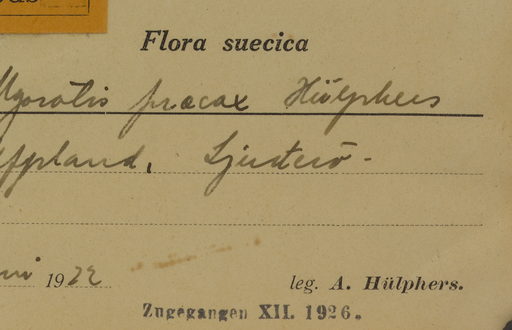 Flora suecica
Myosotis præcox Hülphers
Uppland, Ljusterö -
19 22
leg. A. Hülphers.
Zugegangen XII. 1926.